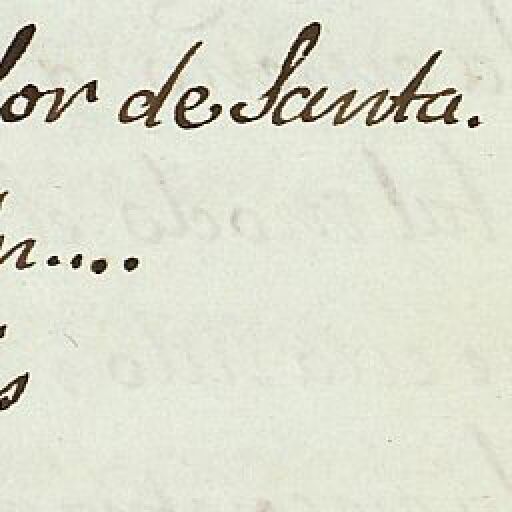 lor de Santa.
n....
s